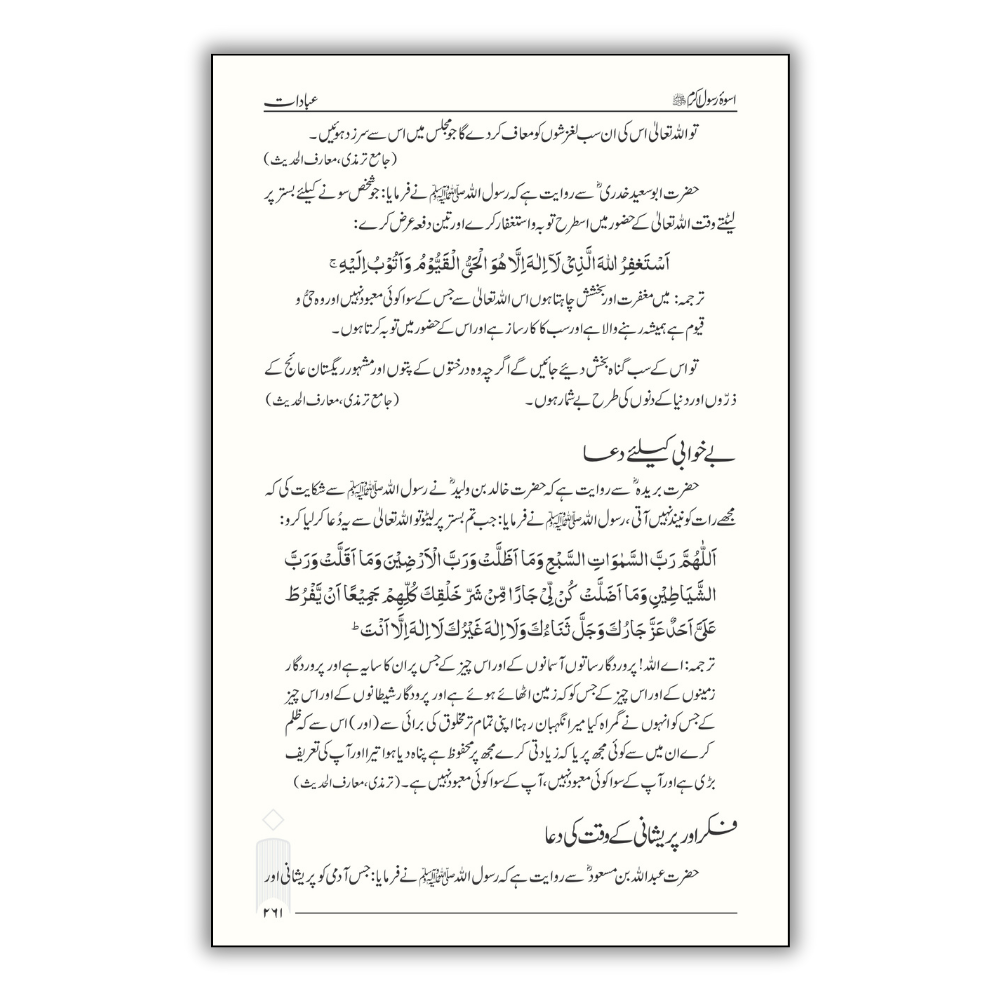 اسوۂ رسول اکرم ﷺ
عبادات
تو اللہ تعالیٰ اس کی ان سب لغزشوں کو معاف کر دے گا جو مجلس میں اس سے سرزد ہوئیں۔
(جامع ترمذی، معارف الحدیث)
حضرت ابو سعید خدریؓ سے روایت ہے کہ رسول اللہ ﷺ نے فرمایا: جو شخص سونے کیلئے بستر پر
لیٹتے وقت اللہ تعالیٰ کے حضور میں اسطرح توبہ و استغفار کرے اور تین دفعہ عرض کرے:
اَسْتَغْفِرُ اللهَ الَّذِىْ لَآ اِلٰهَ اِلَّا هُوَ الْحَىُّ الْقَيُّوْمُ وَاَتُوْبُ اِلَيْهِ ۚ
ترجمہ: میں مغفرت اور بخشش چاہتا ہوں اس اللہ تعالیٰ سے جس کے سوا کوئی معبود نہیں اور وہ حیّ و
قیوم ہے ہمیشہ رہنے والا ہے اور سب کا کارساز ہے اور اس کے حضور میں توبہ کرتا ہوں۔
تو اس کے سب گناہ بخش دیئے جائیں گے اگر چہ وہ درختوں کے پتوں اور مشہور ریگستان عالج کے
ذرّوں اور دنیا کے دنوں کی طرح بے شمار ہوں۔ (جامع ترمذی، معارف الحدیث)
بے خوابی کیلئے دعا
حضرت بریدہؓ سے روایت ہے کہ حضرت خالد بن ولیدؓ نے رسول اللہ ﷺ سے شکایت کی کہ
مجھے رات کو نیند نہیں آتی، رسول اللہ ﷺ نے فرمایا: جب تم بستر پر لیٹو تو اللہ تعالیٰ سے یہ دُعا کر لیا کرو:
اَللّٰهُمَّ رَبَّ السَّمٰوَاتِ السَّبْعِ وَمَا اَظَلَّتْ وَرَبَّ الْاَرْضِيْنَ وَمَا اَقَلَّتْ وَرَبَّ
الشَّيَاطِيْنِ وَمَا اَضَلَّتْ كُنْ لِّىْ جَارًا مِّنْ شَرِّ خَلْقِكَ كُلِّهِمْ جَمِيْعًا اَنْ يَّفْرُطَ
عَلَىَّ اَحَدٌ عَزَّ جَارُكَ وَجَلَّ ثَنَاءُكَ وَلَا اِلٰهَ غَيْرُكَ لَا اِلٰهَ اِلَّا اَنْتَ ؕ
ترجمہ: اے اللہ! پروردگار ساتوں آسمانوں کے اور اس چیز کے جس پر ان کا سایہ ہے اور پروردگار
زمینوں کے اور اس چیز کے جس کو کہ زمین اٹھائے ہوئے ہے اور پرودگار شیطانوں کے اور اس چیز
کے جس کو انہوں نے گمراہ کیا میرا نگہبان رہنا اپنی تمام تر مخلوق کی برائی سے (اور) اس سے کہ ظلم
کرے ان میں سے کوئی مجھ پر یا کہ زیادتی کرے مجھ پر محفوظ ہے پناہ دیا ہوا تیرا اور آپ کی تعریف
بڑی ہے اور آپ کے سوا کوئی معبود نہیں، آپ کے سوا کوئی معبود نہیں ہے۔ (ترمذی، معارف الحدیث)
فکر اور پریشانی کے وقت کی دعا
حضرت عبداللہ بن مسعودؓ سے روایت ہے کہ رسول اللہ ﷺ نے فرمایا: جس آدمی کو پریشانی اور
۲۶۱